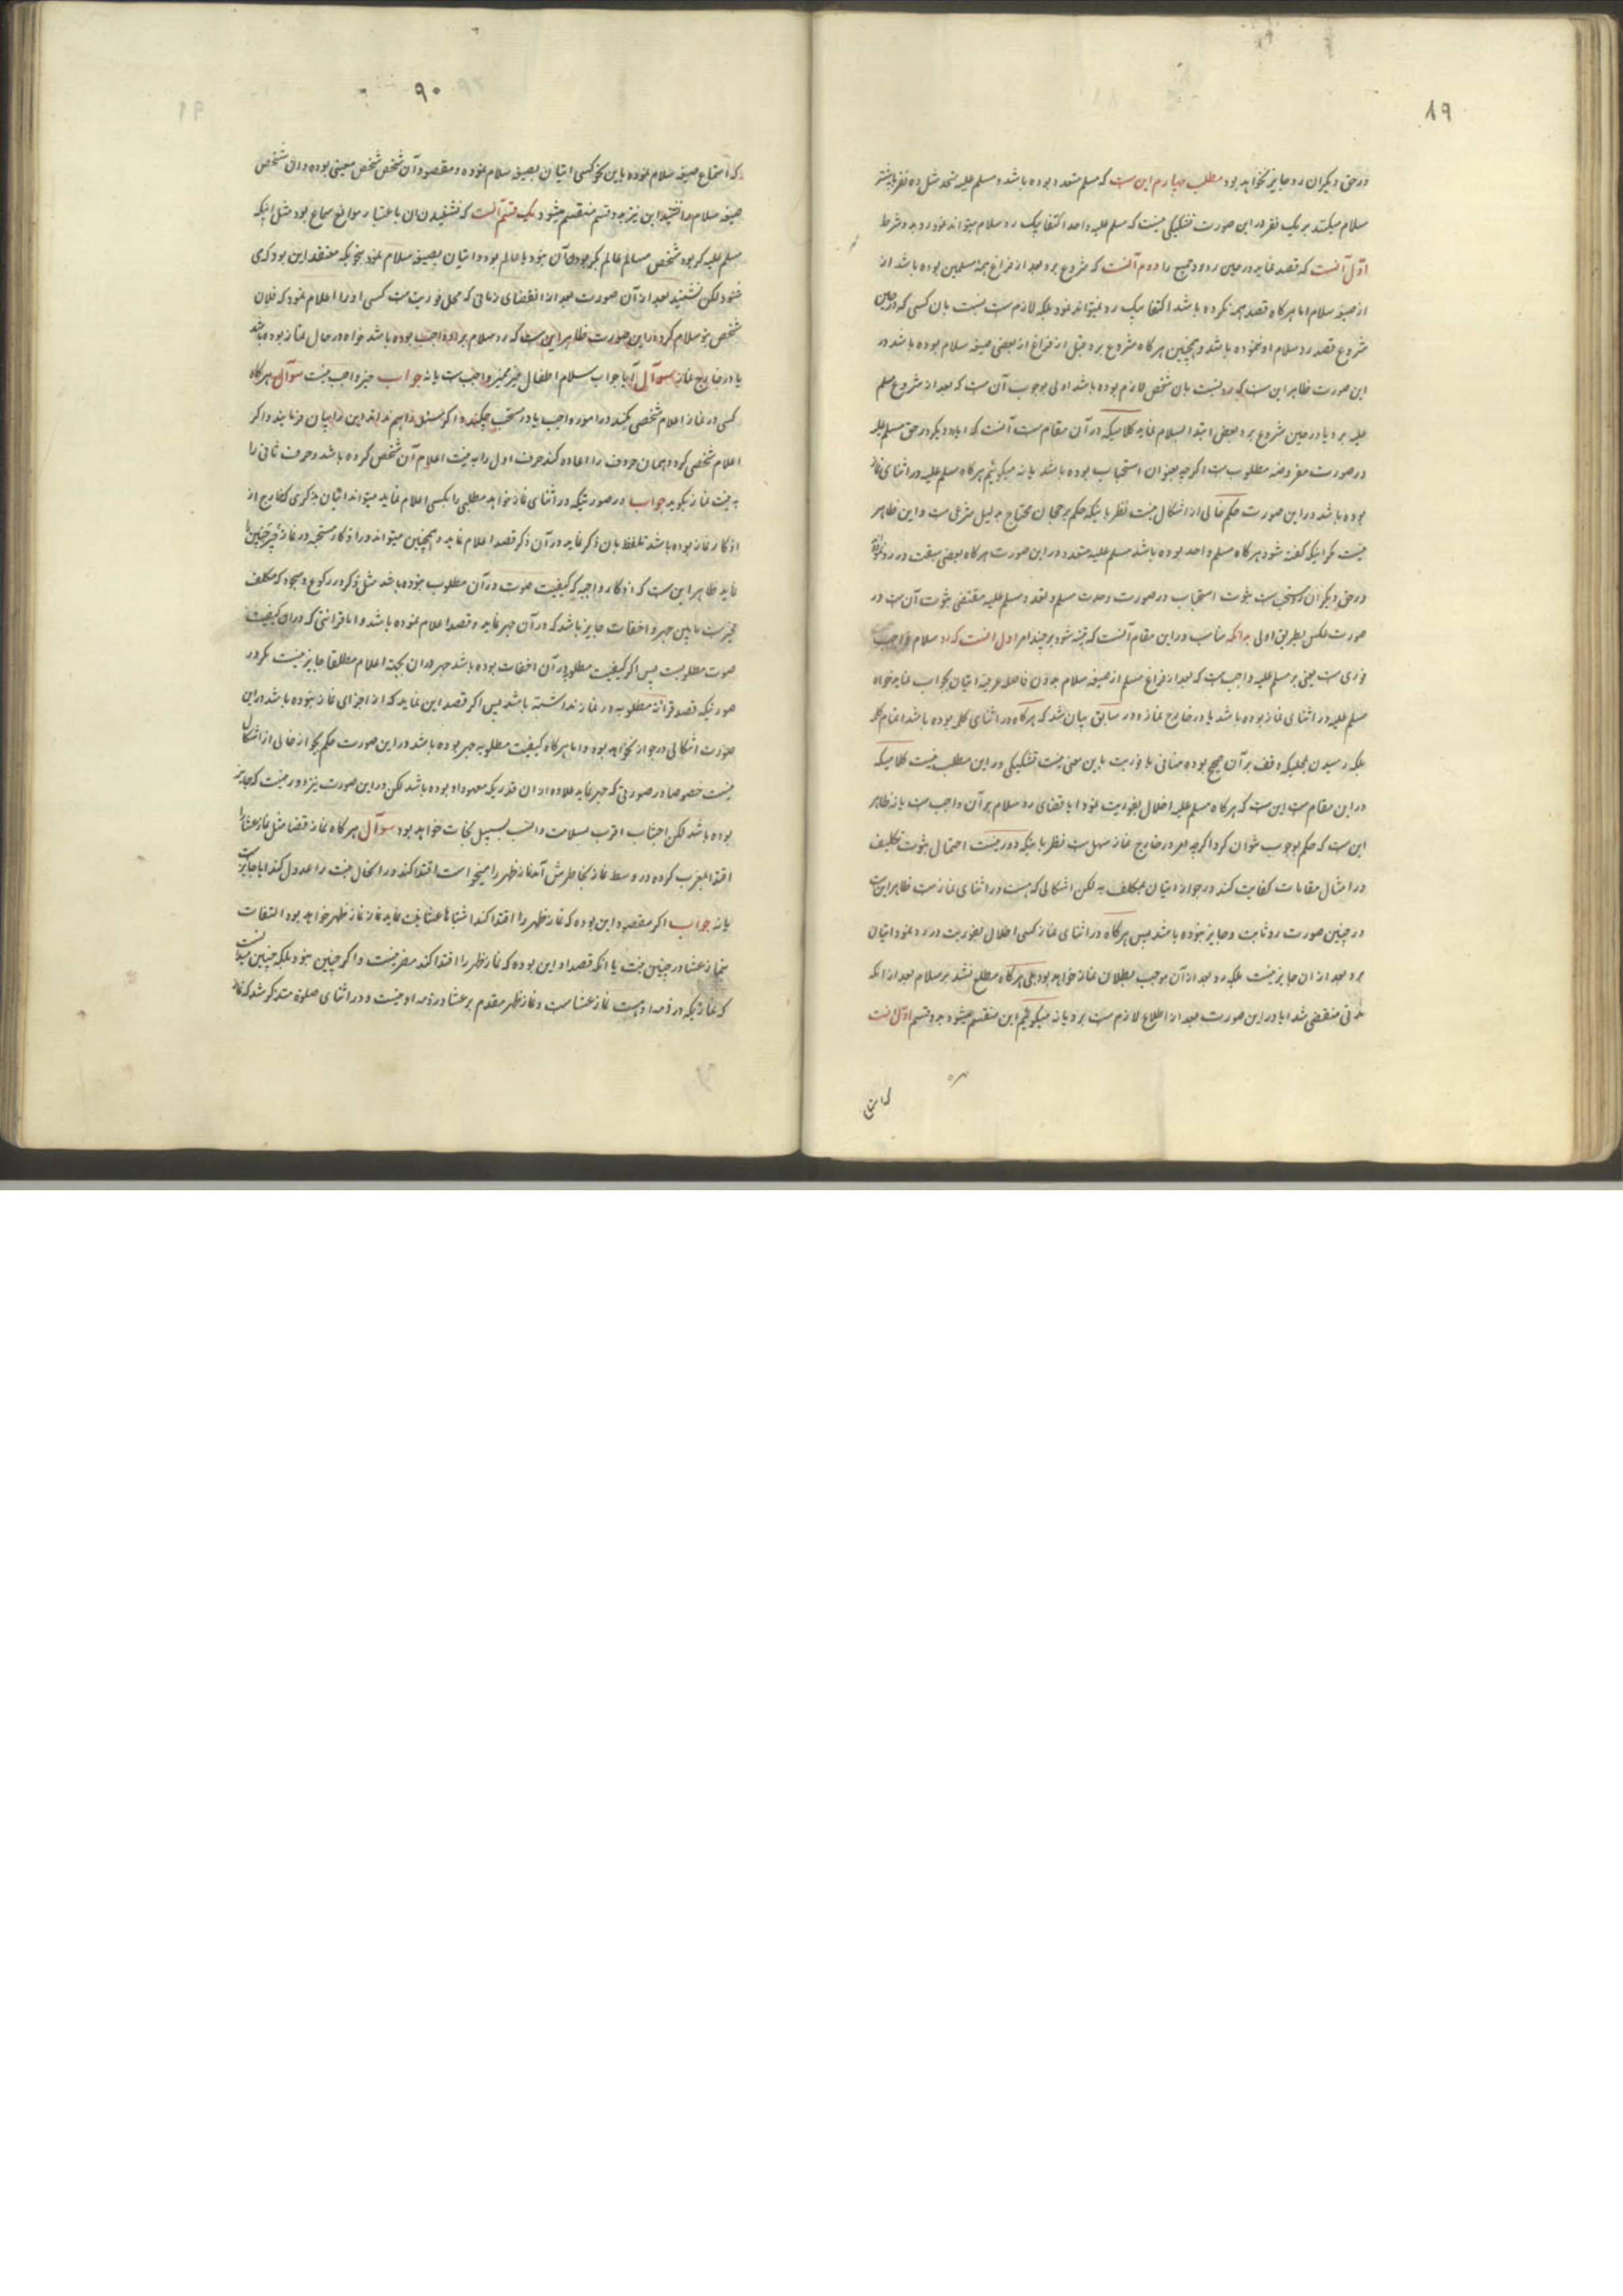 ۸۹
در حق دیگران رد جایز نخواهد بود مطلب چهارم این ست که مسلم متعدد بوده باشد و مسلم علیه متحد مثل ده نفر یا بیشتر
سلام میکنند بر یک نفر در این صورت تشکیکی نیست که مسلم علیه واحد اکتفا بیک رد سلام میتواند نمود رد بدو شرط
اول آنست که قصد نماید در حین رد رد جمیع را دوم آنست که شروع برد بعد از فراغ همه مسلمین بوده باشد از
از صیغه سلام اما هرگاه قصد همه نکرده باشد اکتفا بیک رد نمیتواند نمود بلکه لازم ست نسبت بان کسی که در حین
شروع قصد رد سلام او ننموده باشد و همچنین هرگاه شروع برد قبل از فراغ از بعضی صیغه سلام بوده باشد در
این صورت ظاهر این ست که رد نسبت بان شخص لازم بوده باشد اولی بوجوب آن ست که بعد از شروع مسلم
علیه برد یا در حین شروع برد بعض ابتدا بسلام نماید کلامیکه در آن مقام ست آنست که ایا رد دیگر در حق مسلم علیه
در صورت مفروضه مطلوب ست اگرچه بعنوان استحباب بوده باشد یا نه میگوئیم هرگاه مسلم علیه در اثنای نماز
بوده باشد در این صورت حکم خالی از اشکال نیست نظر باینکه حکم برجحان محتاج بدلیل شرعی ست و این ظاهر
نیست مگر اینکه گفته شود هرگاه مسلم واحد بوده باشد مسلم علیه متعدد در این صورت هرگاه بعضی سبقت در رد نمود
در حق دیگران رد مستحب ست ثبوت استحباب در صورت وحدت مسلم و تعدد مسلم علیه مقتضی ثبوت آن ست در
صورت عکس بطریق اولی بدانکه مناسب در این مقام آنست که تنبیه شود بر چند امر اول انست که رد سلام واجب
فوری ست یعنی بر مسلم علیه واجب ست که بعد از فراغ مسلم از صیغه سلام بدون فاصله عرفیه اتیان بجواب نماید خواه
مسلم علیه در اثنای نماز بوده باشد یا در خارج نماز و در سابق بیان شد که هرگاه در اثنای کلمه بوده باشد اتمام کلمه
بلکه رسیدن بجائیکه وقف بر آن صحیح بوده منافی با فوریت باین معنی نیست تشکیکی در این مطلب نیست کلامیکه
در این مقام ست این ست که هرگاه مسلم علیه اخلال بفوریت نمود ایا قضای رد سلام بر آن واجب ست یا نه ظاهر
این ست که حکم بوجوب نتوان کرد اگرچه امر در خارج نماز سهل ست نظر باینکه دور نیست احتمال ثبوت تکلیف
در امثال مقامات کفایت کند در جواز اتیان بمکلف به لکن اشکالی که هست در اثنای نماز ست ظاهر این ست
در چنین صورت رد ثابت و جایز نبوده باشد پس هرگاه در اثنای نماز کسی اخلال بفوریت در رد نمود اتیان
برد بعد از ان جایز نیست بلکه رد بعد از آن موجب بطلان نماز خواهد بود بلی هرگاه مطلع نشد بر سلام بعد از انکه
مدتی منقضی شد ایا در این صورت بعد از اطلاع لازم ست برد یا نه میگوئیم این منقسم میشود بدو قسم اول انست
۹۰
که استماع صیغه سلام ننموده باین نحو کسی اتیان بصیغه سلام نموده و مقصود آن شخص شخص معینی بوده و ان شخص
صیغه سلام را نشنید این نیز بدو قسم منقسم میشود یک قسم آنست که نشنیدن ان باعتبار موانع سماع بود مثل اینکه
مسلم علیه کر بود شخص مسلم عالم بکر بودن آن نبود یا عالم بود و اتیان بصیغه سلام نمود بنحویکه معتقد این بود که می
شنود لکن نشنید بعد از آن صورت بعد از انقضای زمانی که محل فوریت ست کسی او را اعلام نمود که فلان
شخص بتو سلام کرد در این صورت ظاهر این ست که رد سلام بر او واجب بوده باشد خواه در حال نماز بوده باشد
یا در خارج نماز سوال آیا جواب سلام اطفال غیر ممیز واجب ست یا نه جواب خیر واجب نیست سوال هرگاه
کسی در نماز اعلام شخصی کند در امور واجب یا در مستحب چیکند و اگر مسئله را هم نداند این را بیان فرمایند و اگر
اعلام شخصی کرد و همان حروف را اعاده کند حرف اول را به نیت اعلام آن شخص کرده باشد و حرف ثانی را
به نیت نماز بگوید جواب در صورتیکه در اثنای نماز خواهد مطلبی را بکسی اعلام نماید میتواند اتیان بذکری که خارج از
اذکار نماز بوده باشد تلفظ بان ذکر نماید در آن ذکر قصد اعلام نماید و همچنین میتواند در اذکار مستحبه در نماز نیز چنین
نماید ظاهر این ست که اذکار واجبه که کیفیت صوت در آن مطلوب نبوده باشد مثل ذکر در رکوع و سجود که مکلف
مخیر ست مابین جهر و اخفات جایز باشد که در آن جهر نماید و قصد اعلام نموده باشد و اما قرائتی که در ان کیفیت
صوت مطلوبست پس اگر کیفیت مطلوبه در آن اخفات بوده باشد جهر در ان بجهة اعلام مطلقا جایز نیست مگر در
صورتیکه قصد قرائة مطلوبه در نماز نداشته باشد پس اگر قصد این نماید که از اجزای نماز نبوده باشد در این
صورت اشکالی در جواز نخواهد بود و اما هرگاه کیفیت مطلوبه جهر بوده باشد در این صورت حکم بجواز خالی از اشکال
نیست خصوصا در صورتی که جهر نماید علاوه از ان قدریکه معهود او بوده باشد لکن در این صورت نیز دور نیست که جایز
بوده باشد لکن اجتناب اقرب بسلامت و انسب بسبیل نجات خواهد بود سوال هرگاه نماز قضا مثل نماز عشا را
اقتدا بمغرب کرده در وسط نماز بخاطرش آمد نماز ظهر را میخواست اقتدا کند در انحال نیت را عدول کند ایا جایز ست
یا نه جواب اگر مقصود این بوده که نماز ظهر را اقتدا کند اشتباها عشا نیت نماید نماز نماز ظهر خواهد بود التفات
بنماز عشا در چنین نیت یا انکه قصد او این بوده که نماز ظهر را اقتدا کند مضر نیست و اگر چنین نبود بلکه چنین میدانست
که نمازیکه در ذمه او هست نماز عشا ست و نماز ظهر مقدم بر عشا در ذمه او نیست و در اثنای صلوة متذکر شد که نماز